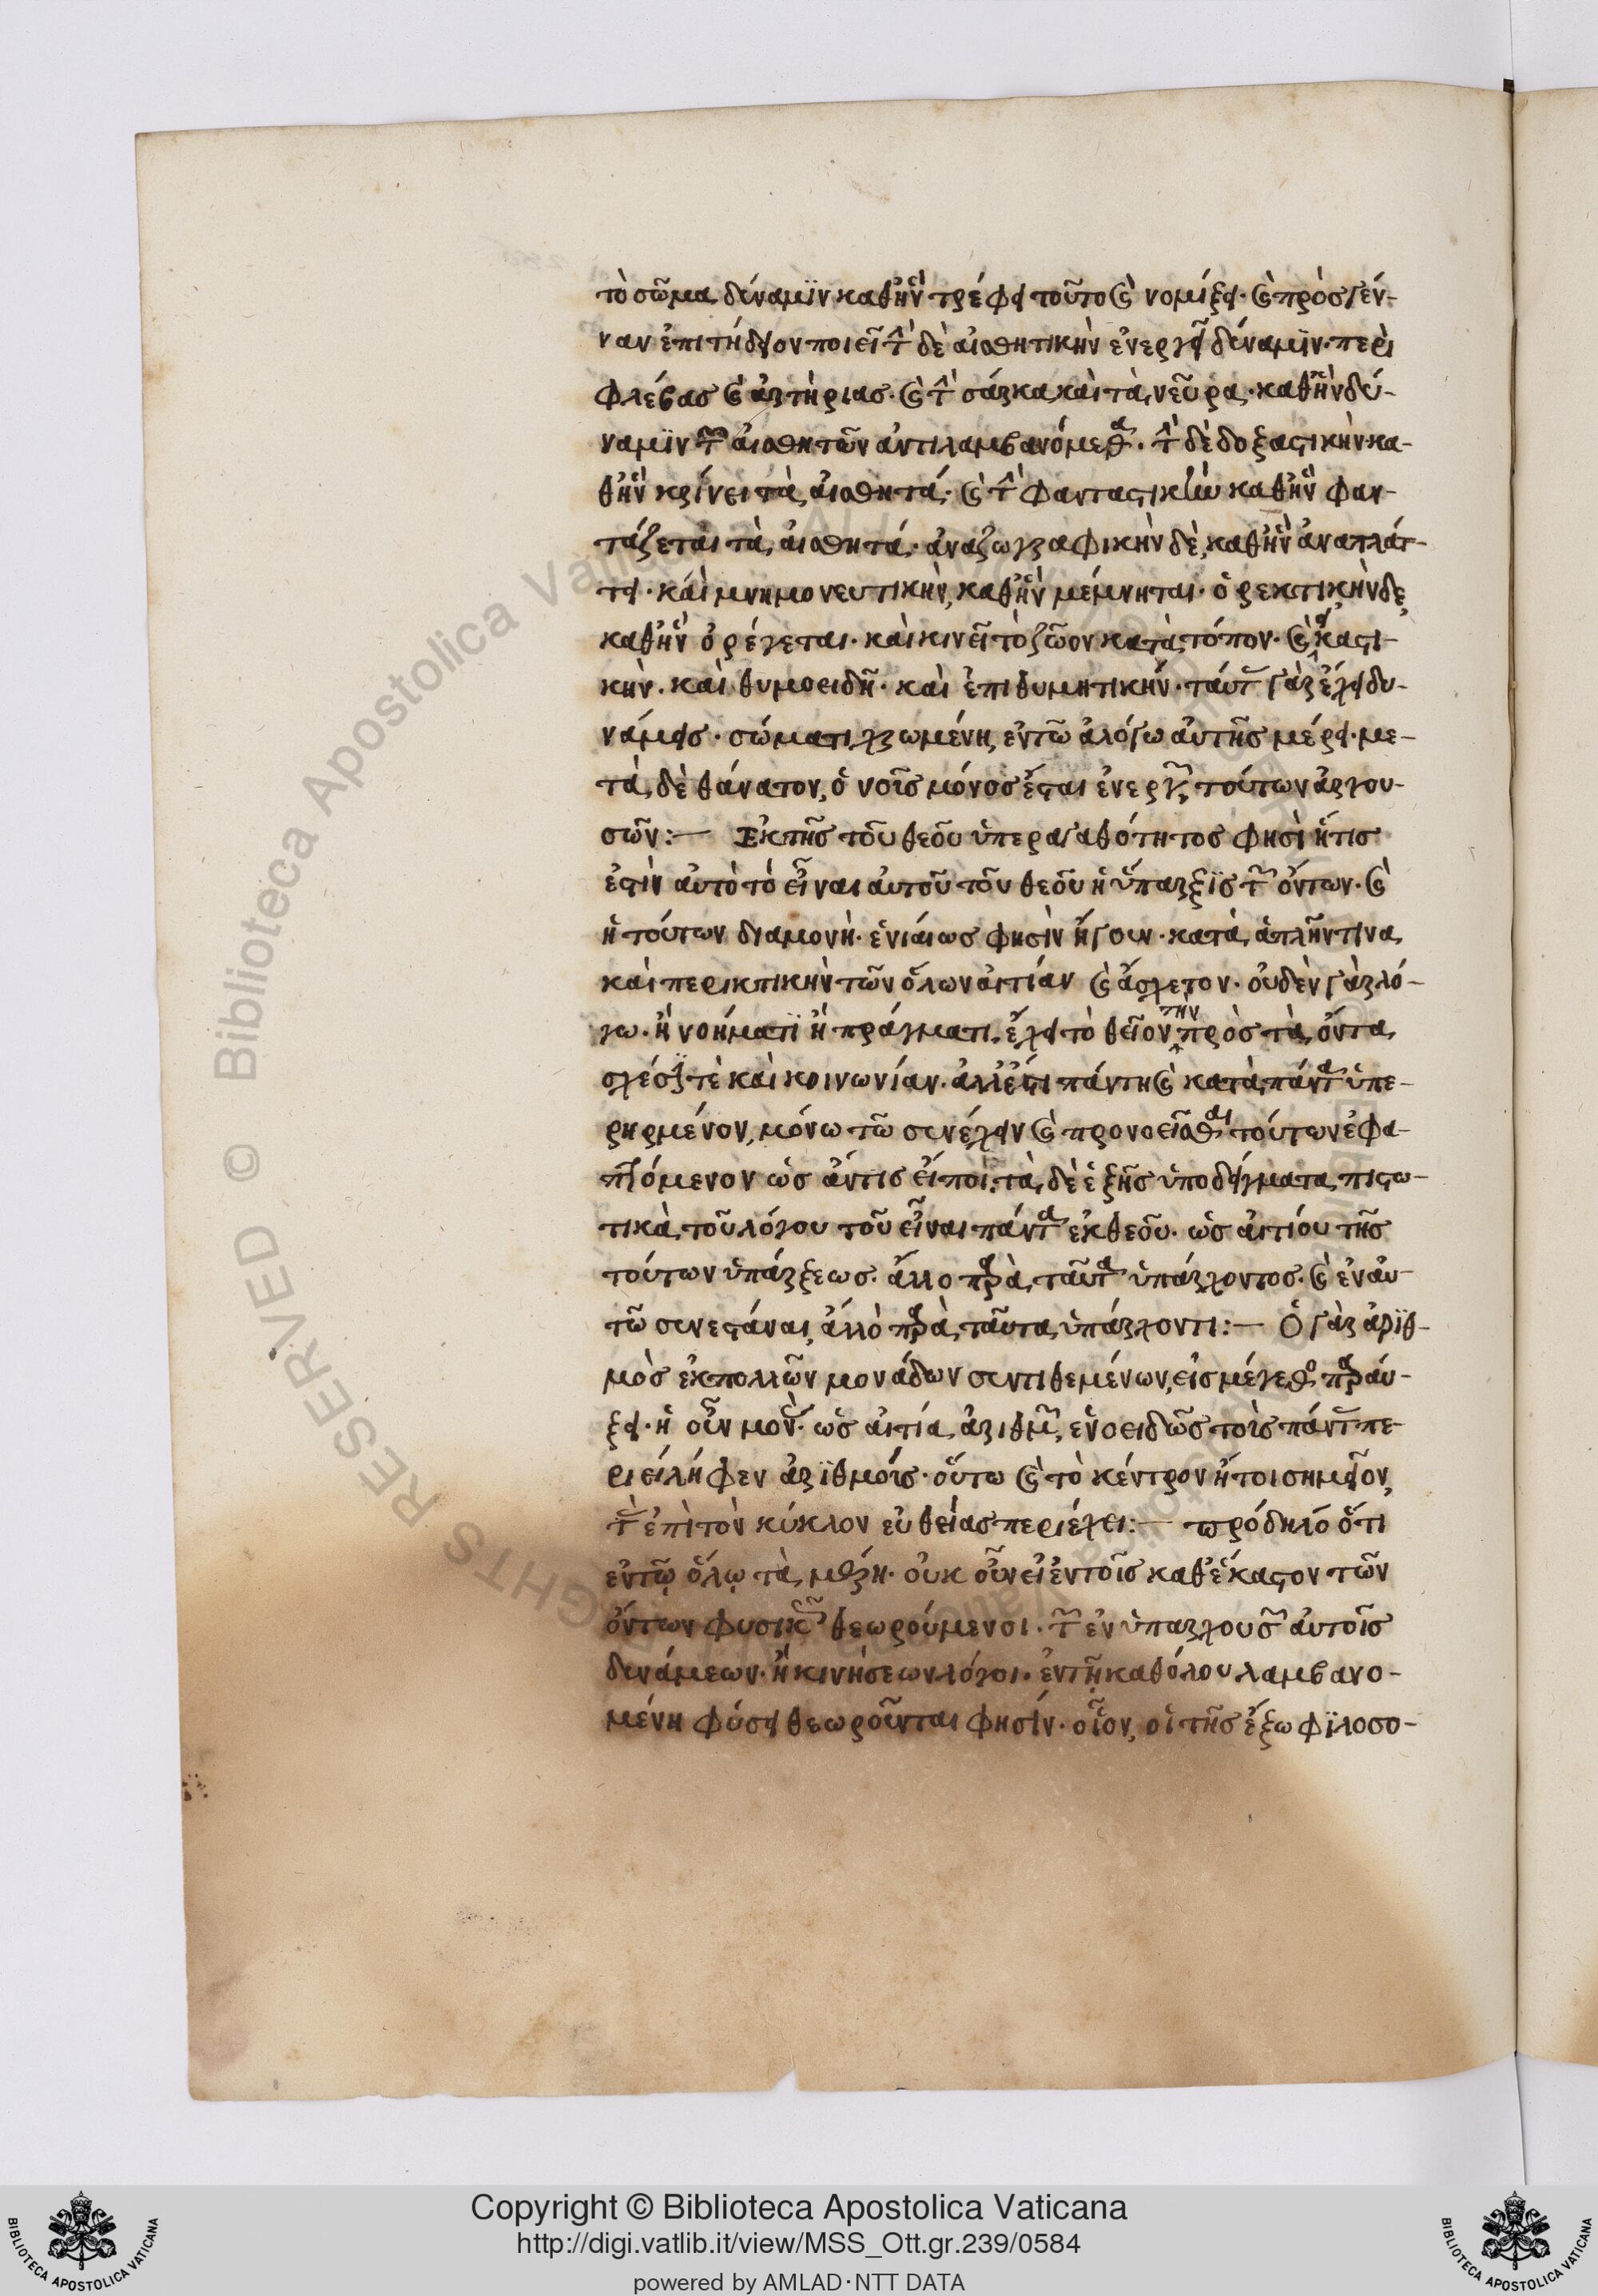 τὸ σῶμα δύναμϊν καθ' ἣν τρέφει τοῦτο καὶ νομίζει· καὶ πρὸς γέν-
ναν ἐπιτήδειον ποιεῖ τὴν δὲ αἰσθητικὴν ἐνεργεῖ δύναμϊν· περὶ
φλέβας καὶ ἀρτηρίας· καὶ τὴν σάρκα καὶ τὰ νεῦρα· καθ' ἣν δύ-
ναμϊν τῶν αἰσθητῶν ἀντιλαμβανόμεθα· τὴν δὲ δοξαστικὴν κα-
θ' ἣν κρίνει τὰ αἰσθητά· καὶ τὴν φανταστικὴν καθ' ἣν φαν-
τάζεται τὰ αἰσθητά· ἀναζωγραφικὴν δὲ, καθ' ἣν ἀναπλάτ-
τει· καὶ μνημονευτικὴν, καθ' ἣν μέμνηται· ὀρεκτικὴν δὲ
καθ' ἣν ὀρέγεται· καὶ κινεῖ τὸ ζῶον κατὰ τόπον· καὶ
κήν· καὶ θυμοειδῆ· καὶ ἐπιθυμητικήν· ταύτας γὰρ ἔχει δυ-
νάμεις· σώματι χρωμένη, ἐν τῶ ἀλόγω αὐτῆς μέρει· με-
τὰ δὲ θάνατον, ὁ νοῦς μόνος ἔσται ἐνεργῶν, τούτων ἀργου-
σῶν:— Ἐκ τῆς τοῦ θεοῦ ὑπεραγαθότητος φησὶ ἥτις
ἐστὶν αὐτὸ τὸ εἶναι αὐτοῦ τοῦ θεοῦ ἡ ὕπαρξϊς τῶν ὄντων· καὶ
ἡ τούτων διαμονὴ· ἑνιαίως φησὶν ἤγουν· κατὰ ἁπλῆν τινα
καὶ περιεκτικὴν τῶν ὅλων αἰτίαν καὶ ἄσχετον· οὐδὲν γὰρ λό-
γω· ἢ νοήματϊ ἢ πράγματι, ἔχει τὸ θεῖον τὴν πρὸς τὰ ὄντα
σχέσιν τὲ καὶ κοινωνίαν· ἀλλ' ἔστι πάντη καὶ κατὰ πάντα ὑπε-
ρηρμένον, μόνω τῶ συνέχειν καὶ προνοεῖσθαι τούτων ἐφα-
πτόμενον ὡς ἄν τις εἴποι· τὰ δὲ ἑξῆς ὑποδείγματα πιστω-
τικὰ τοῦ λόγου τοῦ εἶναι πάντα ἐκ θεοῦ· ὡς αἰτίου τῆς
τούτων ὑπάρξεως· ἄλλο παρὰ ταῦτα ὑπάρχοντος· καὶ ἐν αὐ-
τῶ συνεστάναι, ἄλλο παρὰ ταῦτα ὑπάρχοντι:— Ὁ γὰρ ἀρϊθ-
μὸς ἐκ πολλῶν μονάδων συντιθεμένων, εἰς μέγεθος παραύ-
ξει· ἡ οὖν μονὰς ὡς αἰτία ἀριθμῶν, ἑνοειδῶς τοὺς πάντας πε-
ριείληφεν ἀρϊθμούς· οὕτω καὶ τὸ κέντρον ἤτοι σημεῖον,
τὰς ἐπὶ τὸν κύκλον εὐθείας περιέχει:— πρόδηλο ὅτι
ἐν τῷ ὅλῳ τὰ μέρη· οὐκ οὖν εἰ ἐν τοῖς καθ' ἕκαστον τῶν
ὄντων φυσικῶς θεωρούμενοι· τῶν ἐνυπαρχουσῶν αὐτοῖς
δυνάμεων· ἢ κινήσεων λόγοι· ἐν τῇ καθόλου λαμβανο-
μένη φύσει θεωροῦνται φησίν· οἷον, οἱ τῆς ἔξω φϊλοσο-
Copyright © Biblioteca Apostolica Vaticana
http://digi.vatlib.it/view/MSS_Ott.gr.239/0584
powered by AMLAD·NTT DATA